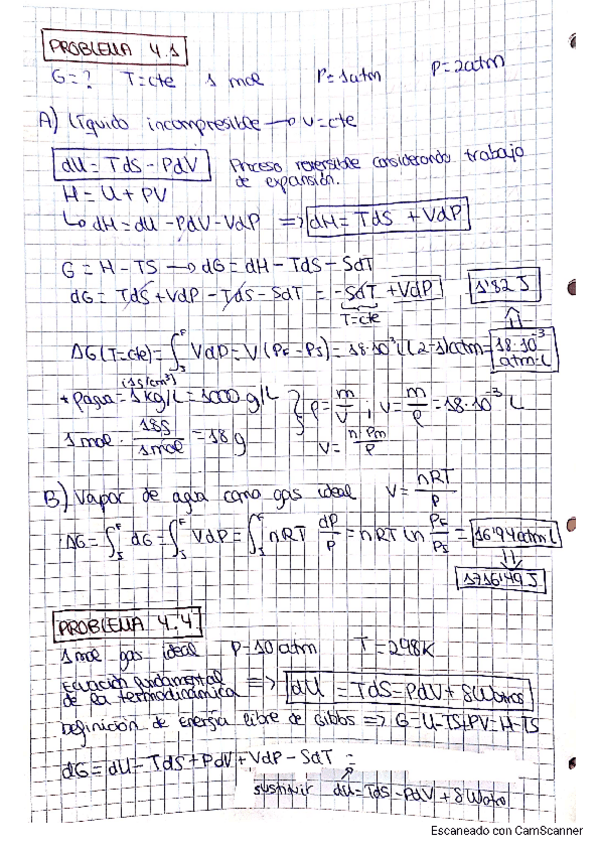 PROBLEMA 4.1
G=? T=cte 1 mol P=1atm P=2atm
A) Líquido incompresible → V=cte
dU = TdS - PdV Proceso reversible considerando trabajo
de expansión.
H = U + PV
↳ dH = dU - PdV - VdP ⇒ dH = TdS + VdP
G = H - TS → dG = dH - TdS - SdT
dG = TdS + VdP - TdS - SdT = -SdT + VdP 1'82 J
T=cte
ΔG (T=cte) = ∫ VdP = V (PF - PS) = 18·10⁻³ L (2-1)atm = 18·10⁻³ atm·L
(1g/cm³)
* ρagua = 1 kg/L = 1000 g/L } ρ = m/V ; V = m/ρ = 18·10⁻³ L
1 mol · 18g/1mol = 18 g V = n·Pm/ρ
B) Vapor de agua como gas ideal V = nRT/P
ΔG = ∫ dG = ∫ VdP = ∫ nRT dP/P = nRT ln PF/PS = 16'94 atm·L
1716'49 J
PROBLEMA 4.4
1 mol gas ideal P=10 atm T=298K
Ecuación fundamental
de la termodinámica ⇒ dU = TdS - PdV + δWotros
Definición de Energía libre de Gibbs ⇒ G=U-TS+PV=H-TS
dG = dU - TdS + PdV + VdP - SdT =
sustituir dU = TdS - PdV + δWotro
Escaneado con CamScanner